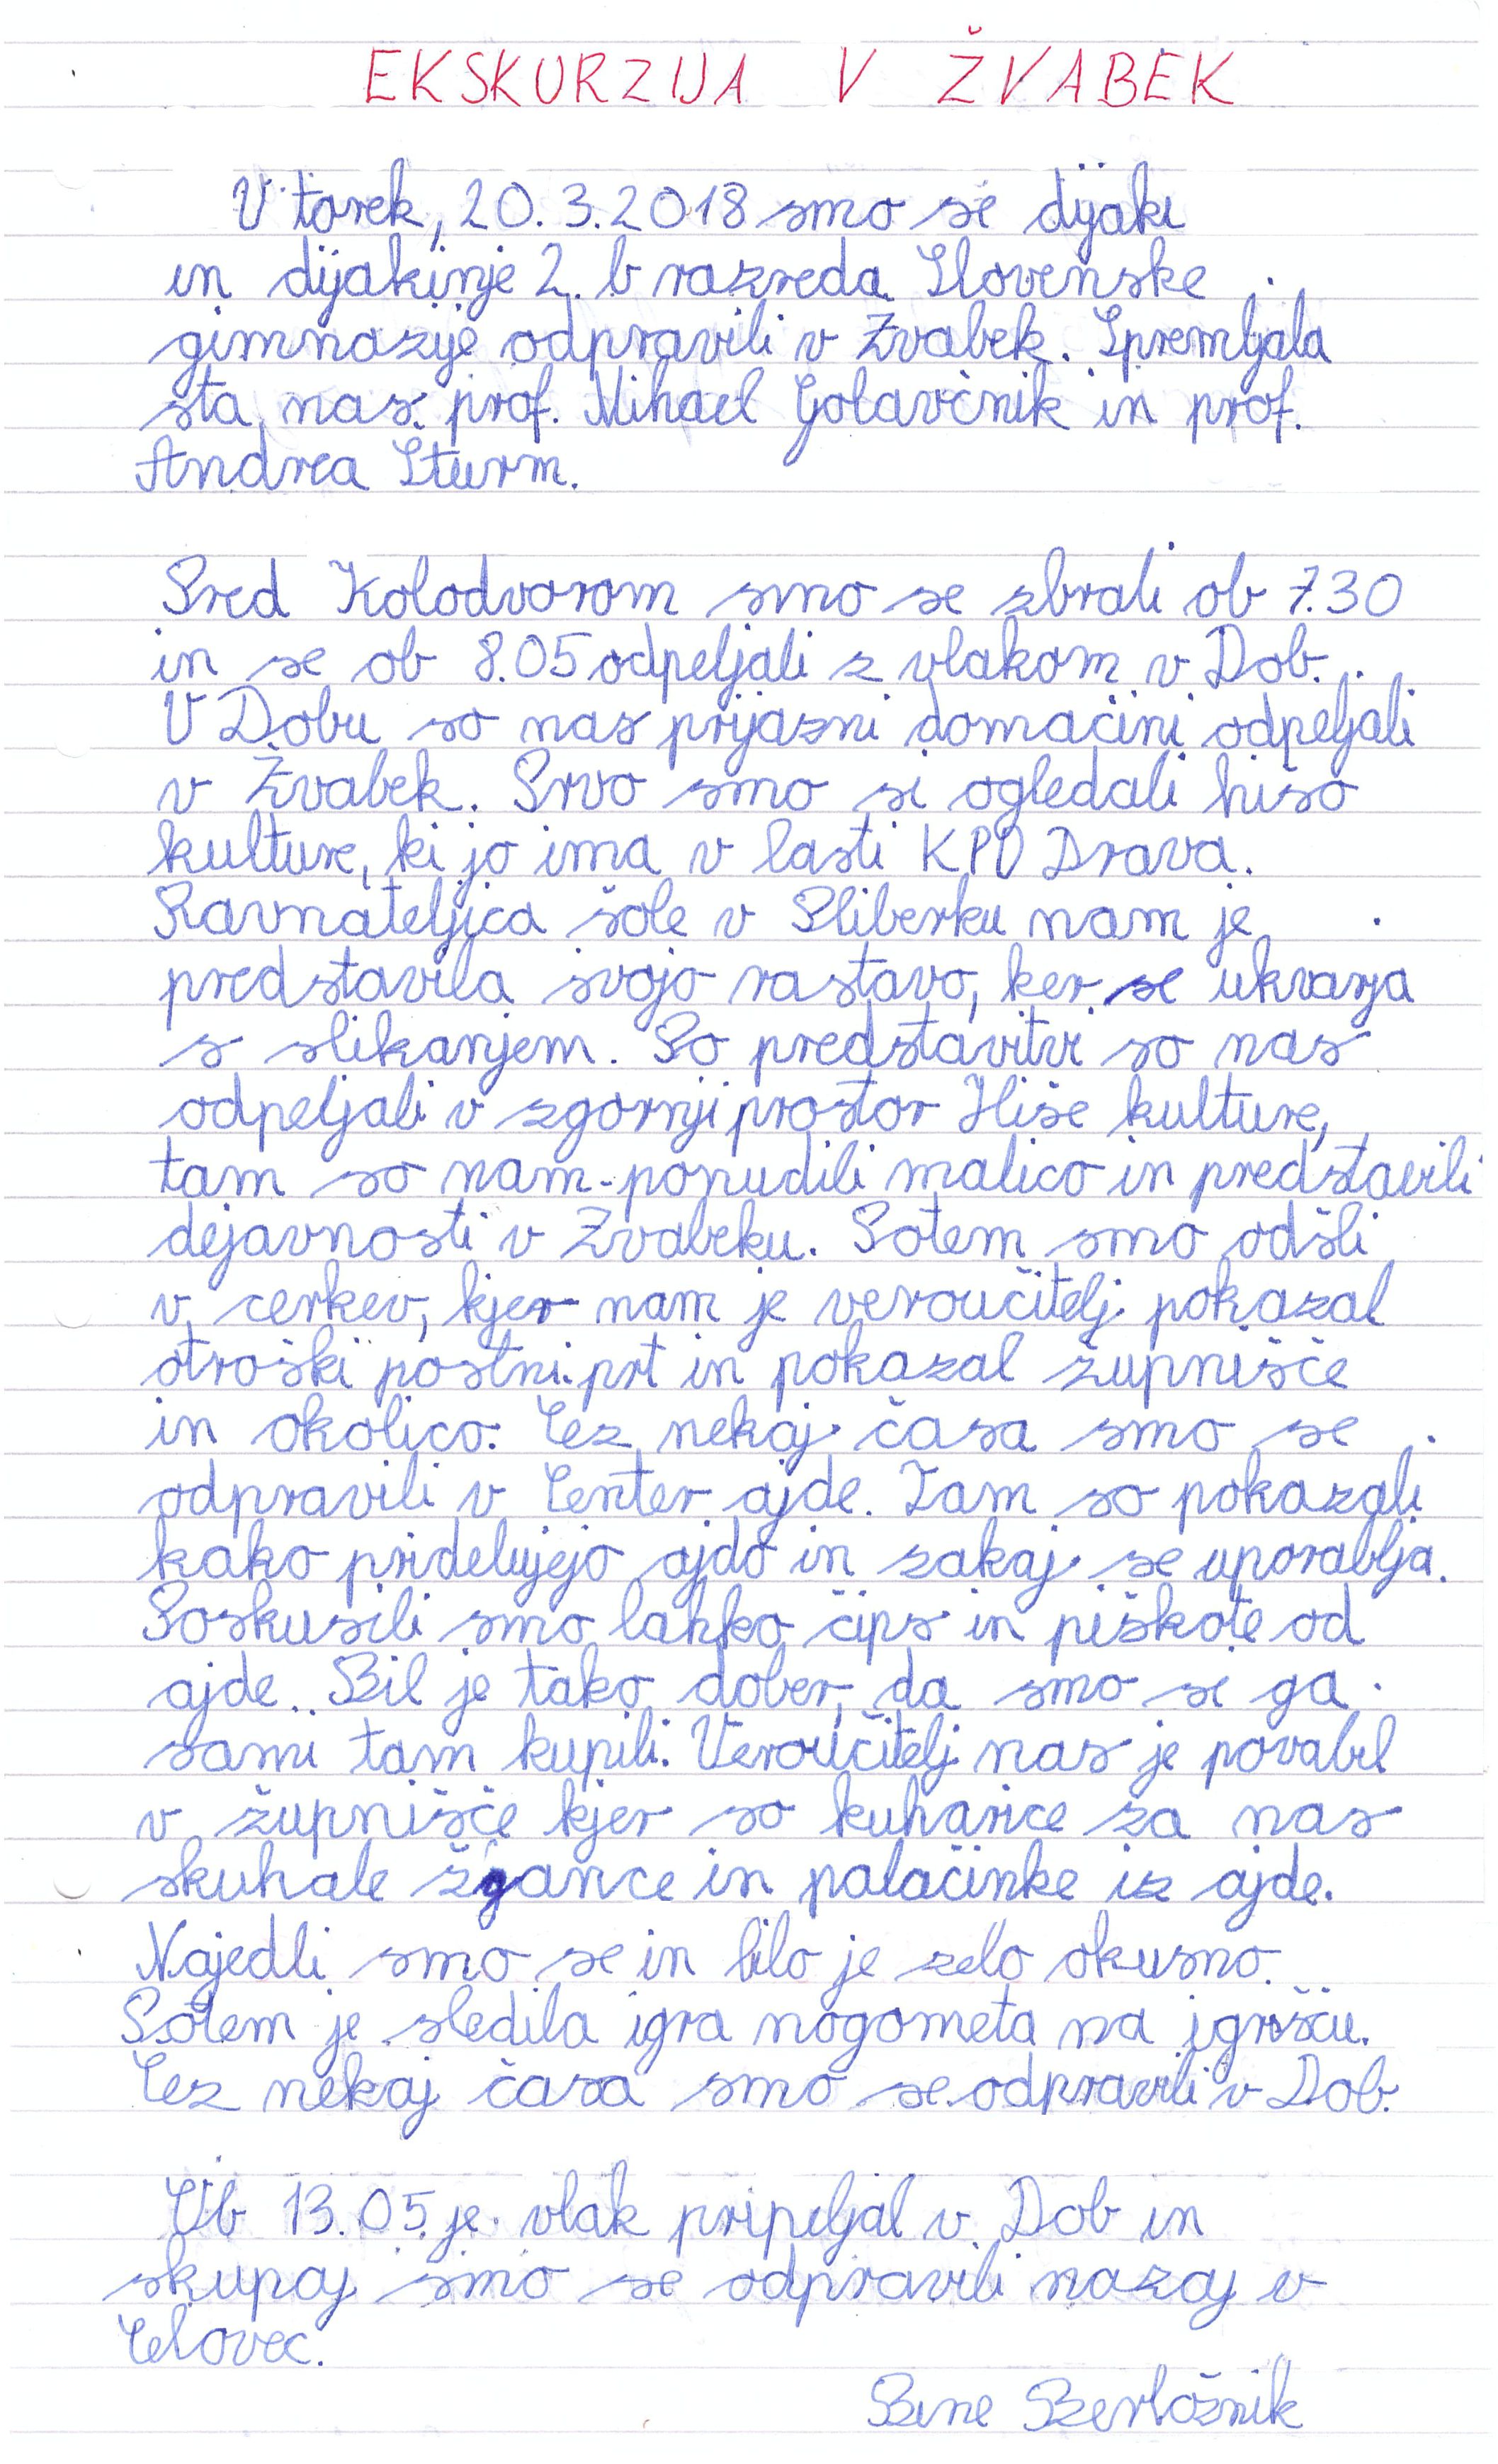 EKSKURZIJA V ŽVABEK
V torek, 20.3.2018 smo se dijaki
in dijakinje 2. b razreda Slovenske
gimnazije odpravili v Žvabek. Spremljala
sta nas prof. Mihael Golavčnik in prof.
Andrea Sturm.
Pred Kolodvorom smo se zbrali ob 7.30
in se ob 8.05 odpeljali z vlakom v Dob.
V Dobu so nas prijazni domačini odpeljali
v Žvabek. Prvo smo si ogledali hišo
kulture, ki jo ima v lasti KPD Drava.
Ravnateljica šole v Pliberku nam je
predstavila svojo rastavo, ker se ukvarja
s slikanjem. Po predstavitvi so nas
odpeljali v zgornji prostor Hiše kulture,
tam so nam ponudili malico in predstavili
dejavnosti v Žvabeku. Potem smo odšli
v cerkev, kjer nam je veroučitelj pokazal
otroški postni prt in pokazal župnišče
in okolico. Čez nekaj časa smo se
odpravili v Center ajde. Tam so pokazali
kako pridelujejo ajdo in zakaj se uporablja.
Poskusili smo lahko čips in piškote od
ajde. Bil je tako dober, da smo si ga
sami tam kupili. Veroučitelj nas je povabil
v župnišče kjer so kuharice za nas
skuhale žgance in palačinke iz ajde.
Najedli smo se in bilo je zelo okusno.
Potem je sledila igra nogometa na igrišču.
Čez nekaj časa smo se odpravili v Dob.
Ob 13.05 je vlak pripeljal v Dob in
skupaj smo se odpravili nazaj v
Celovec.
Bine Berložnik